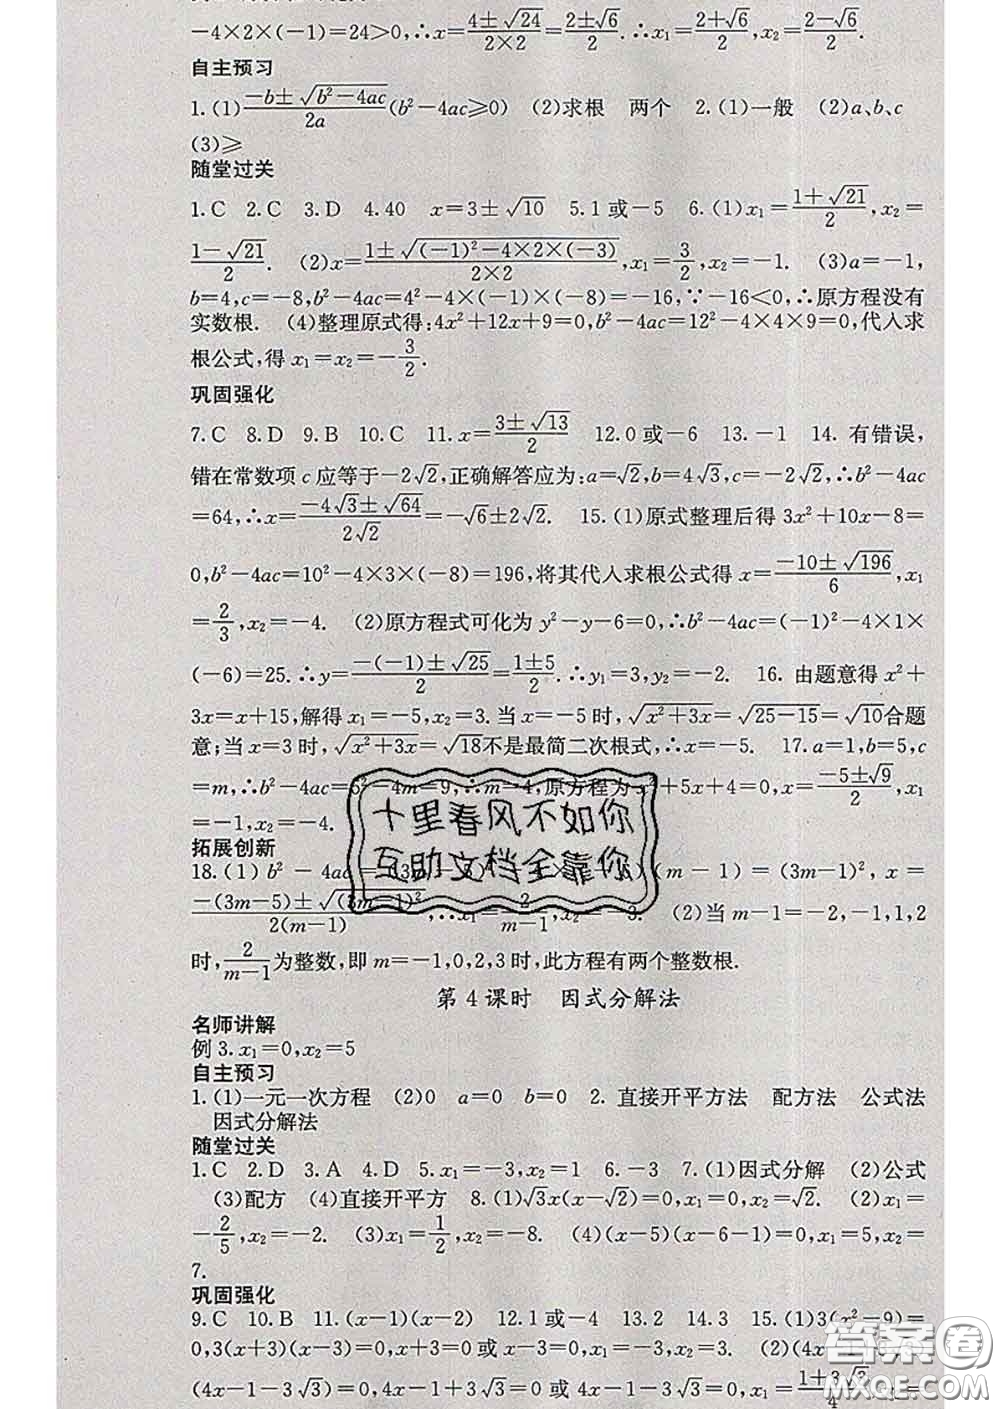 −4×2×(−1)=24>0,∴x=\frac{4±\sqrt{24}}{2×2}=\frac{2±\sqrt{6}}{2}.∴x₁=\frac{2+\sqrt{6}}{2},x₂=\frac{2−\sqrt{6}}{2}.
自主预习
1.(1)\frac{−b±\sqrt{b²−4ac}}{2a}(b²−4ac≥0) (2)求根 两个 2.(1)一般 (2)a、b、c
(3)≥
随堂过关
1.C 2.C 3.D 4.40 x=3±\sqrt{10} 5.1或−5 6.(1)x₁=\frac{1+\sqrt{21}}{2},x₂=
\frac{1−\sqrt{21}}{2}. (2)x=\frac{1±\sqrt{(−1)²−4×2×(−3)}}{2×2},x₁=\frac{3}{2},x₂=−1. (3)a=−1,
b=4,c=−8,b²−4ac=4²−4×(−1)×(−8)=−16,∵−16<0,∴原方程没有
实数根. (4)整理原式得:4x²+12x+9=0,b²−4ac=12²−4×4×9=0,代入求
根公式,得x₁=x₂=−\frac{3}{2}.
巩固强化
7.C 8.D 9.B 10.C 11.x=\frac{3±\sqrt{13}}{2} 12.0或−6 13.−1 14.有错误,
错在常数项c应等于−2\sqrt{2},正确解答应为:a=\sqrt{2},b=4\sqrt{3},c=−2\sqrt{2},∴b²−4ac
=64,∴x=\frac{−4\sqrt{3}±\sqrt{64}}{2\sqrt{2}}=−\sqrt{6}±2\sqrt{2}. 15.(1)原式整理后得3x²+10x−8=
0,b²−4ac=10²−4×3×(−8)=196,将其代入求根公式得x=\frac{−10±\sqrt{196}}{6},x₁
=\frac{2}{3},x₂=−4. (2)原方程式可化为y²−y−6=0,∴b²−4ac=(−1)²−4×1×
(−6)=25.∴y=\frac{−(−1)±\sqrt{25}}{2}=\frac{1±5}{2}.∴y₁=3,y₂=−2. 16.由题意得x²+
3x=x+15,解得x₁=−5,x₂=3.当x=−5时,\sqrt{x²+3x}=\sqrt{25−15}=\sqrt{10}合题
意;当x=3时,\sqrt{x²+3x}=\sqrt{18}不是最简二次根式,∴x=−5. 17.a=1,b=5,c
=m,∴b²−4ac=5²−4m=9,∴m=4,原方程为x²+5x+4=0,x=\frac{−5±\sqrt{9}}{2},x₁
=−1,x₂=−4.
十里春风不如你
互助文档全靠你
拓展创新
18.(1)b²−4ac=(3m (m−1)=(3m−1)²,x=
\frac{−(3m−5)±\sqrt{(3m−1)²}}{2(m−1)},∴x₁=\frac{2}{m−1},x₂=−3. (2)当m−1=−2,−1,1,2
时,\frac{2}{m−1}为整数,即m=−1,0,2,3时,此方程有两个整数根.
第4课时 因式分解法
名师讲解
例3.x₁=0,x₂=5
自主预习
1.(1)一元一次方程 (2)0 a=0 b=0 2.直接开平方法 配方法 公式法
因式分解法
随堂过关
1.C 2.D 3.A 4.D 5.x₁=−3,x₂=1 6.−3 7.(1)因式分解 (2)公式
(3)配方 (4)直接开平方 8.(1)\sqrt{3}x(x−\sqrt{2})=0,x₁=0,x₂=\sqrt{2}. (2)x₁=
−\frac{2}{5},x₂=−2. (3)x₁=\frac{1}{2},x₂=−8. (4)(x−5)(x−6−1)=0,x₁=5,x₂=
7.
巩固强化
9.C 10.B 11.(x−1)(x−2) 12.1或−4 13.2 14.3 15.(1)3(x²−9)=
0,3(x+3)(x−3)=0,x+3=0或x−3=0,x₁=−3,x₂=3. (2)(4x−1
(4x−1−3\sqrt{3})=0,4x−1+3\sqrt{3}=0或4x−1−3\sqrt{3}=0,x₁=\frac{1+3\sqrt{3}}{4}
答案圈
MXQE.COM